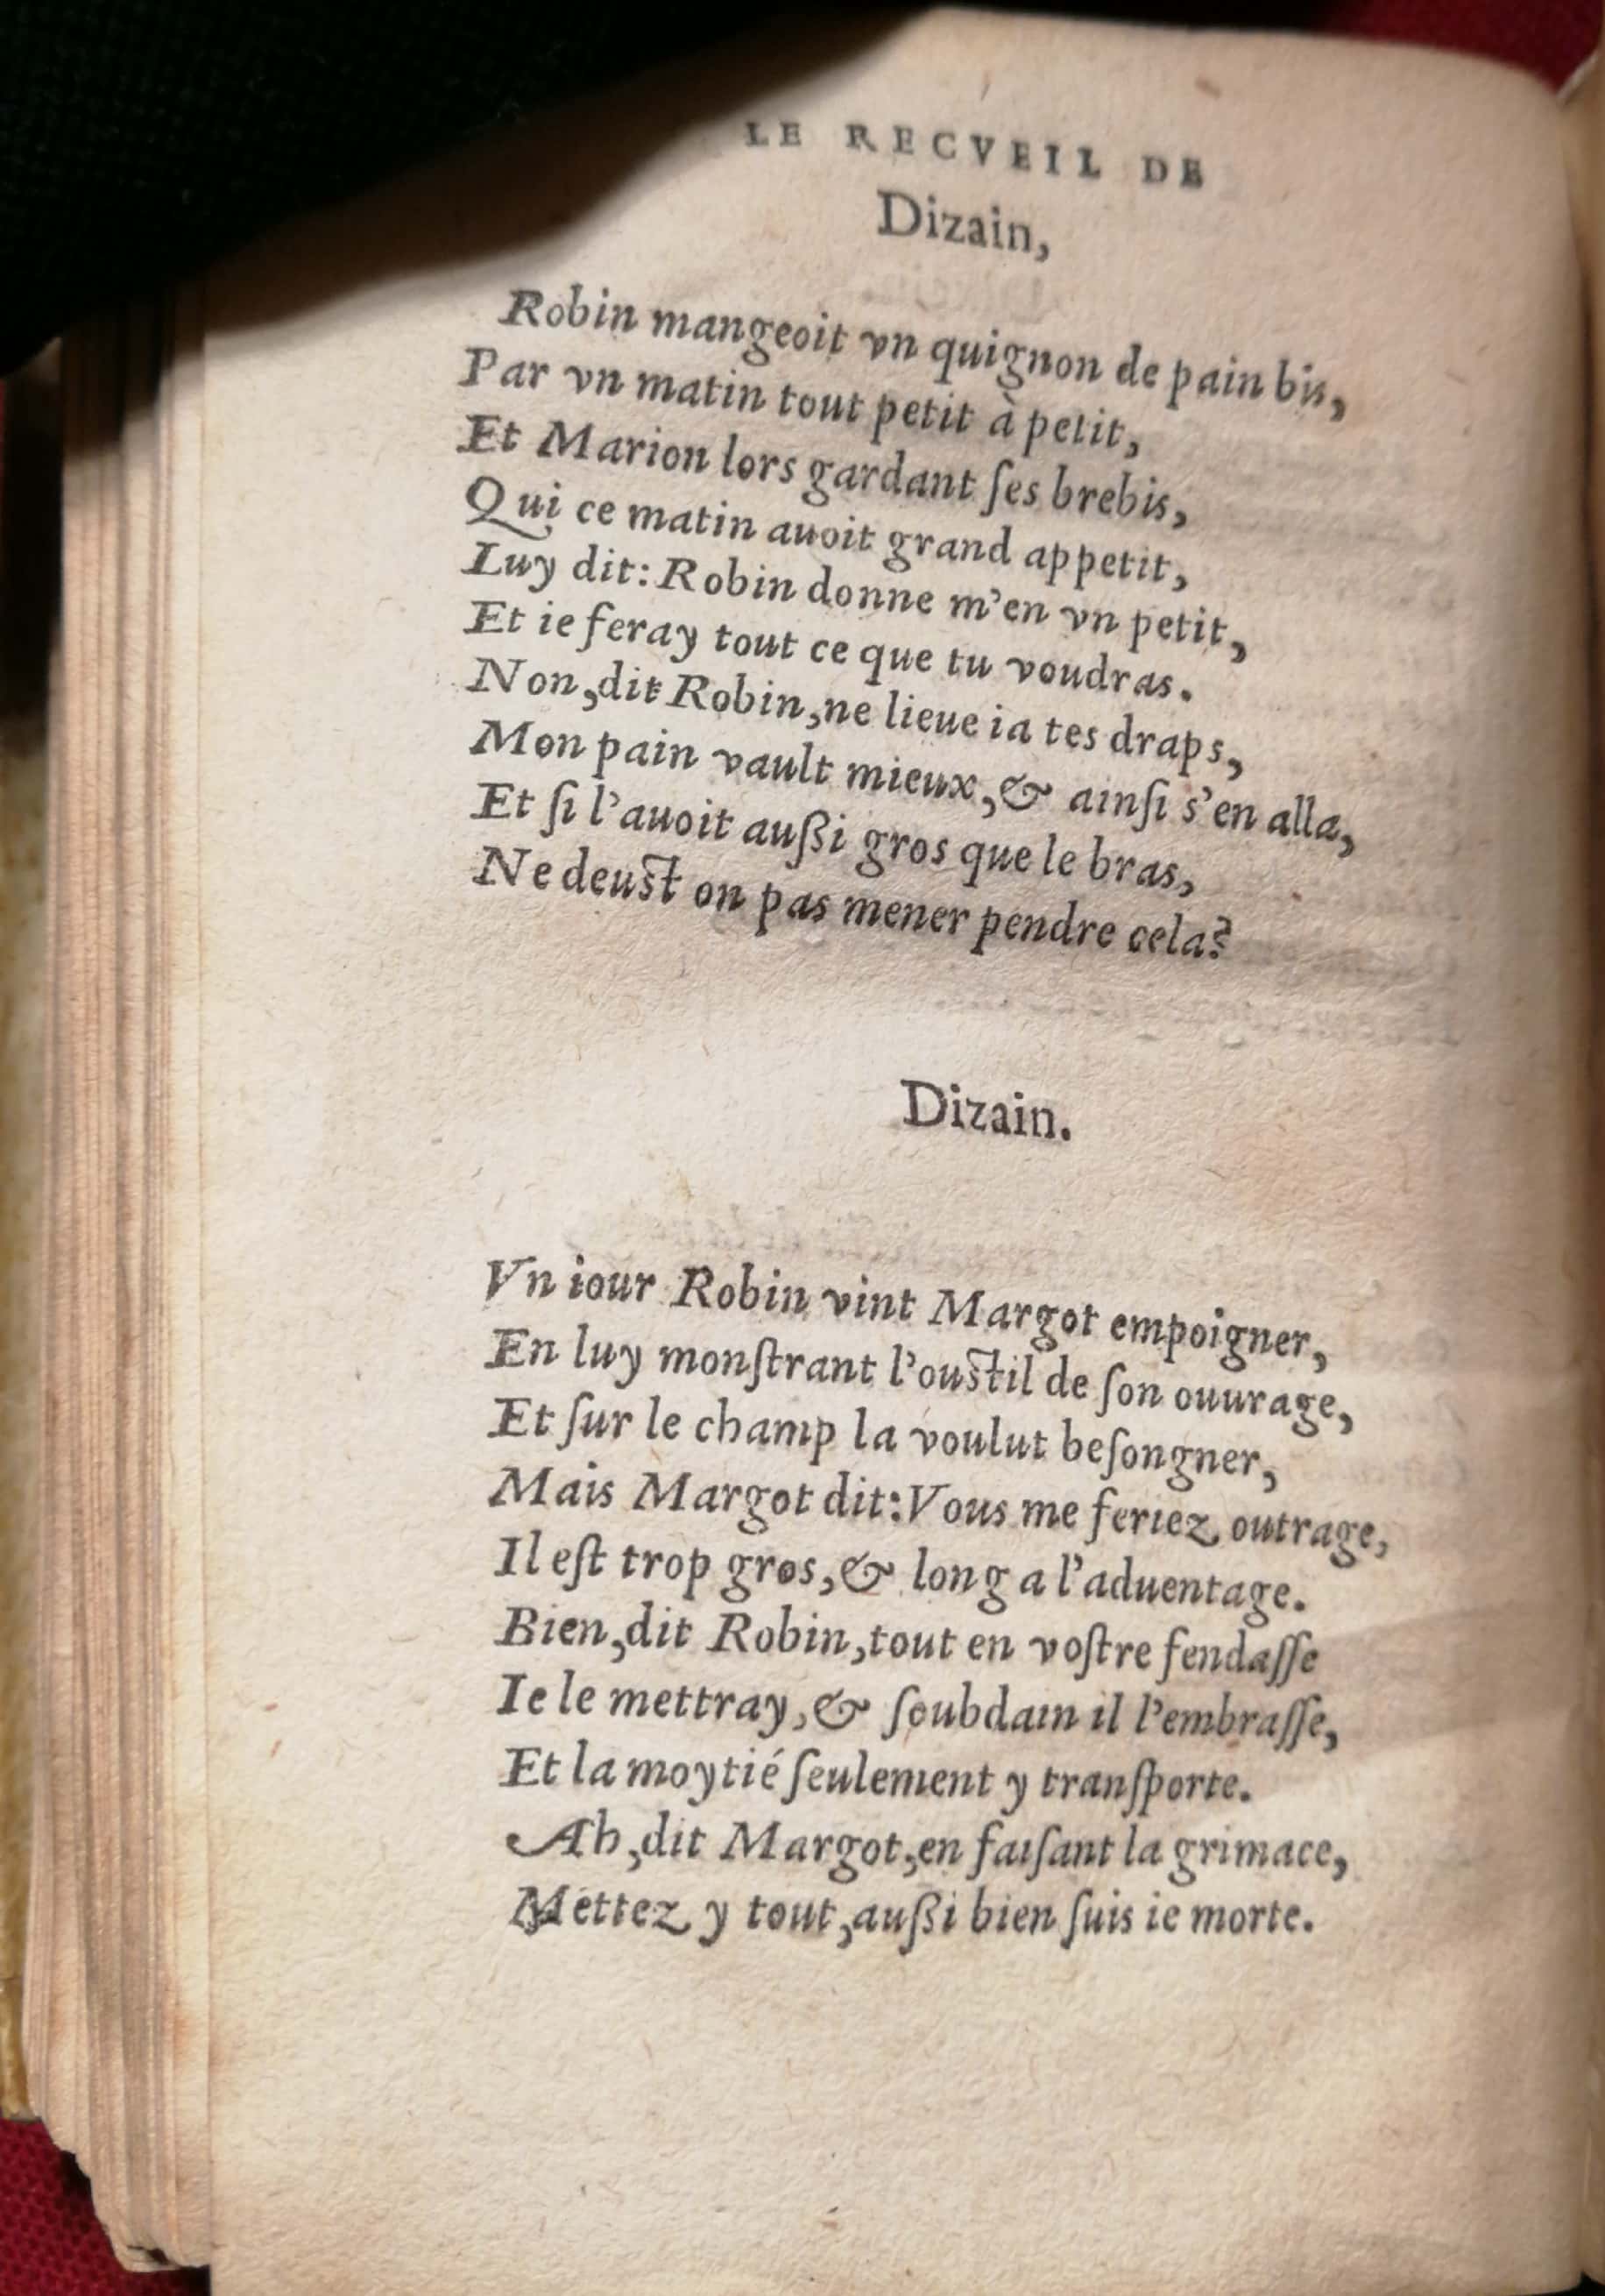 LE RECVEIL DE
Dizain,
Robin mangeoit vn quignon de pain bis,
Par vn matin tout petit à petit,
Et Marion lors gardant ſes brebis,
Qui ce matin auoit grand appetit,
Luy dit: Robin donne m'en vn petit,
Et ie feray tout ce que tu voudras.
Non, dit Robin, ne lieue ia tes draps,
Mon pain vault mieux, & ainſi s'en alla,
Et ſi l'auoit außi gros que le bras,
Ne deuſt on pas mener pendre cela?
Dizain.
Vn iour Robin vint Margot empoigner,
En luy monſtrant l'ouſtil de ſon ouurage,
Et ſur le champ la voulut beſongner,
Mais Margot dit: Vous me feriez outrage,
Il eſt trop gros, & long a l'aduentage.
Bien, dit Robin, tout en voſtre fendaſſe
Ie le mettray, & ſoubdain il l'embraſſe,
Et la moytié ſeulement y tranſporte.
Ah, dit Margot, en faiſant la grimace,
Mettez y tout, außi bien ſuis ie morte.